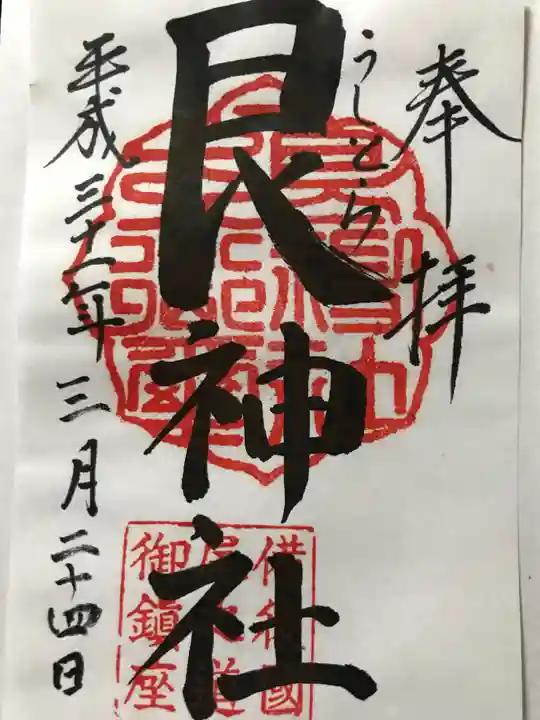 奉拝
うしとら
艮神社
平成三十一年三月二十四日
備後國
尾道
御鎮座